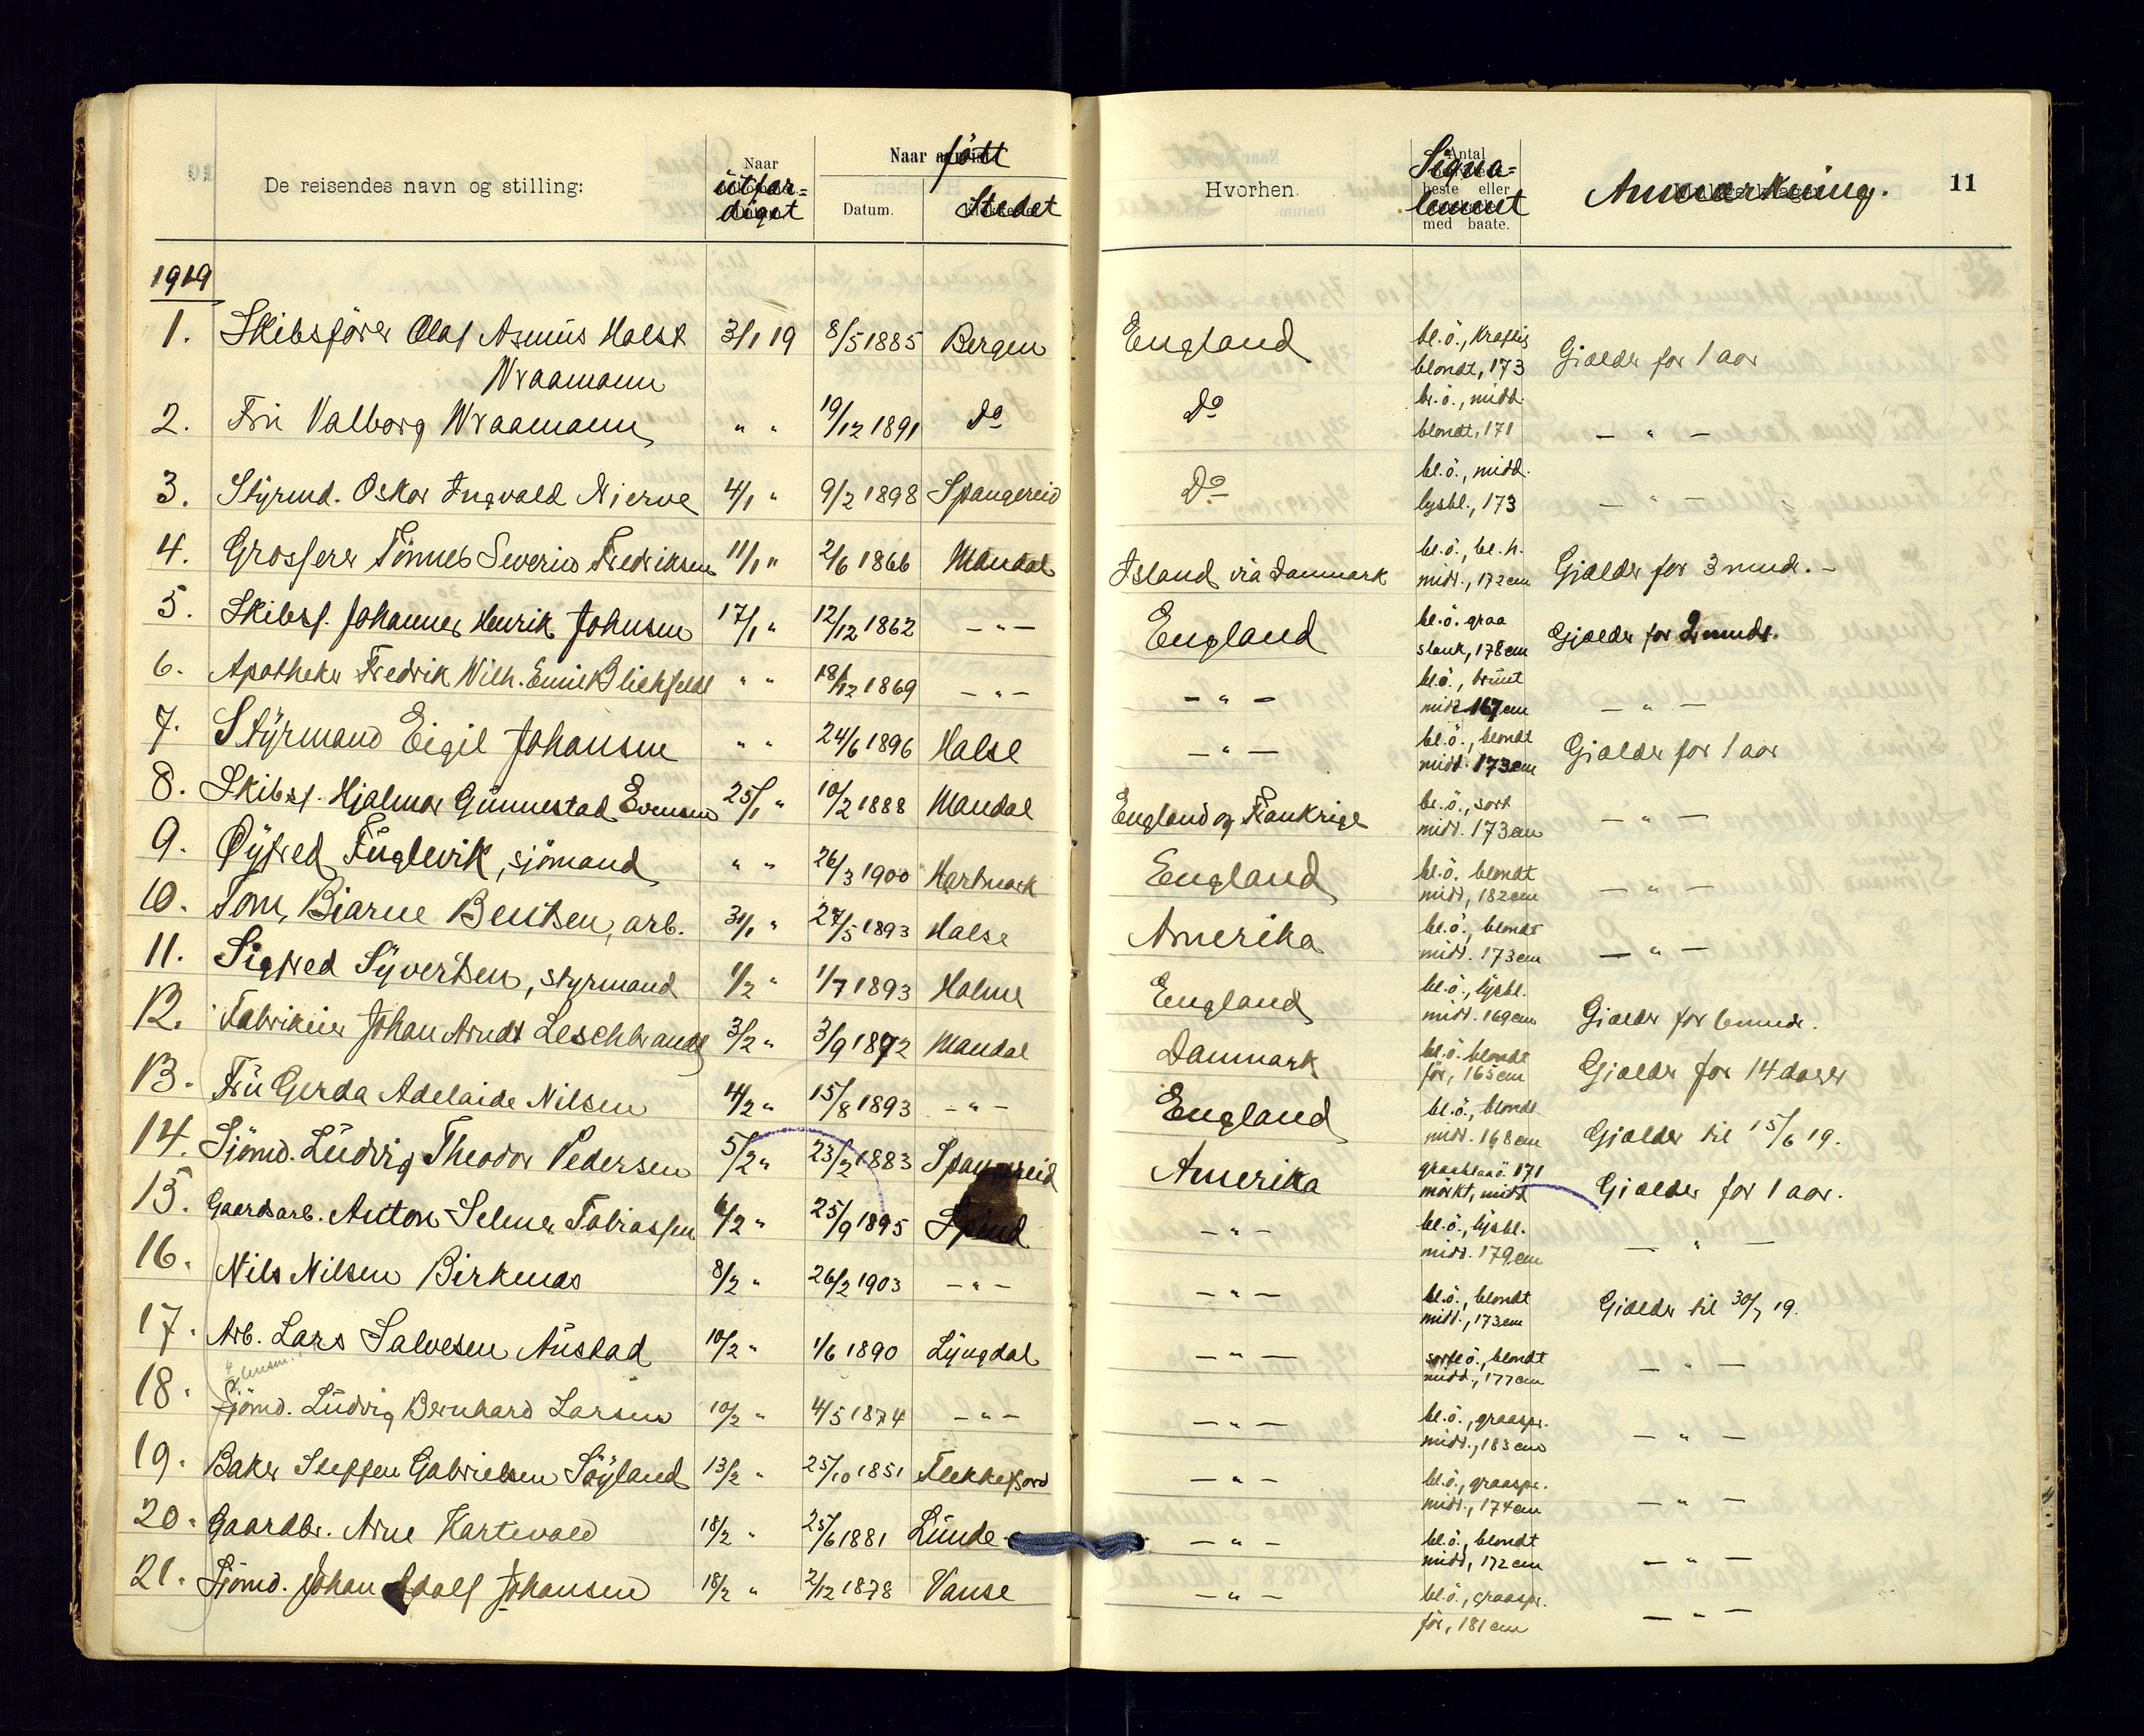 De reisendes navn og stilling:
Naar
ütfær=
diget
Naar født
Datum.
Stedet
Hvorhen.
Antal
Signa=
beste eller
lement
med baate.
Anmærkning.
11
1919
1. Skibsförer Olaf Asmüs Halst 3/1 19 8/5 1885 Bergen England bl.ö., kraftig
Wraamann blondt, 173 Gjælder for 1 aar
2. Frü Valborg Wraamann " " 19/12 1891 Do Do br.ö., midd.
blondt, 171 — " —
3. Styrmd. Oskar Ingvald Njerve 4/1 " 9/2 1898 Spangereid Do bl.ö., midd.
lysbl., 173 — " —
4. Grosserer Tönnes Severin Fredriksen 11/1 " 2/6 1866 Mandal Island via Danmark bl.ö., bl.h.
midd., 172 cm Gjælder for 3 mnd. –
5. Skibsf. Johannes Henrik Johnsen 17/1 " 12/12 1862 — " — England bl.ö. graa
slank, 178 cm Gjælder for 2 mndr.
6. Apotheker Fredrik Wilh. Emil Blichfeldt " " 18/12 1869 — " — — " — bl.ö., brünt
midd. 167 cm — " —
7. Styrmand Eigil Johansen " " 24/6 1896 Halse — " — bl.ö., blondt
midd. 173 cm Gjælder for 1 aar
8. Skibsf. Hjalmar Günnestad Evensen 25/1 " 10/2 1888 Mandal England og Frankrige br.ö., sort
midd. 173 cm — " —
9. Øyfred Füglevik, sjömand " " 26/3 1900 Hartmark England bl.ö. blondt
midd., 182 cm — " —
10. Tom Bjarne Bentsen, arb. 31/1 " 27/5 1893 Halse Amerika bl.ö., blondt
midd. 173 cm — " —
11. Sigfred Syvertsen, styrmand 1/2 " 1/7 1893 Holme England bl.ö., lysbl.
midd. 169 cm Gjælder for 6 mndr.
12. Fabrikeier Johan Arndt Leschbrandt 3/2 " 3/9 1892 Mandal Danmark bl.ö. blondt
för, 165 cm Gjælder for 14 dager
13. Frü Gerda Adelaide Nilsen 4/2 " 15/8 1893 — " — England bl.ö., blondt
midd. 168 cm Gjælder til 15/6 19.
14. Sjömd. Lüdvig Theodor Pedersen 5/2 " 23/2 1883 Spangereid Amerika graablaaö. 171
mörkt, midd Gjælder for 1 aar.
15. Gaardsarb. Anton Selmer Tobiassen 6/2 " 25/9 1895 Spind — " — bl.ö., lysbl.
midd. 179 cm — " —
16. Nils Nilsen Birkenes 8/2 " 26/2 1903 — " — — " — bl.ö., blondt
midd., 173 cm Gjælder til 30/7 19.
17. Arb. Lars Salvesen Aüstad 10/2 " 1/6 1890 Lyngdal — " — sorte ö., blondt
midd., 177 cm — " —
18. Sjömd. Lüdvig Bernhard Larsen 10/2 " 4/5 1874 — " — — " — bl.ö., graaspr.
midd., 183 cm — " —
19. Baker Steffen Gabrielsen Söyland 13/2 " 25/10 1851 Flekkefjord — " — bl.ö., graaspr.
midd., 174 cm — " —
20. Gaardbr. Arne Hartevold 18/2 " 25/6 1881 Lünde — " — bl.ö., blondt
midd., 172 cm — " —
21. Sjömd. Johan Adolf Johansen 18/2 " 2/12 1878 Vanse — " — bl.ö., graaspr.
för, 181 cm — " —